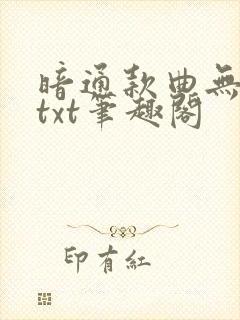 暗通款曲無
txt筆趣閣
印有紅